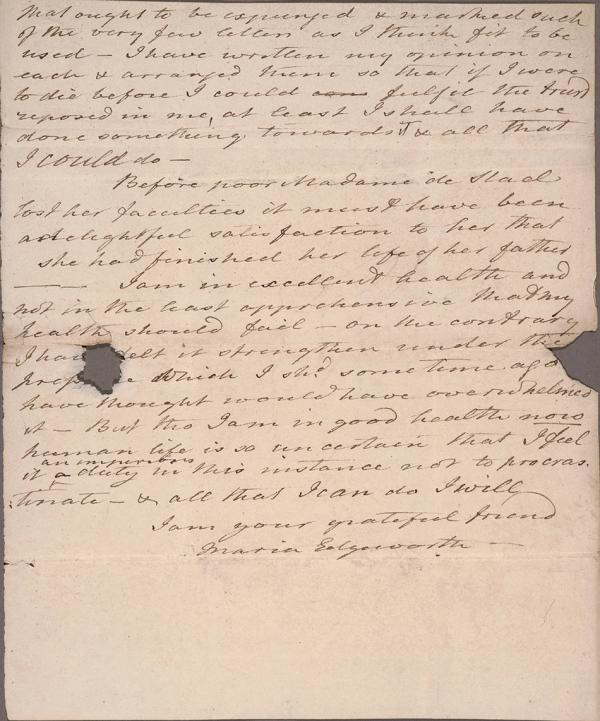 that ought to be expunged & marked such
of the very few letters as I think fit to be
used – I have written my opinion on
each & arranged them so that if I were
to die before I could fulfil the trust
reposed in me, at least I shall have
done something towards it & all that
I could do –
Before poor Madame de Stael
lost her faculties it must have been
a delightful satisfaction to her that
she had finished her life of her father
—— I am in excellent health and
not in the least apprehensive that my
health should fail – on the contrary
I have felt it strengthen under the
which I shd. some time ago
have thought would have overwhelmed
it – But tho I am in good health now
human life is so uncertain that I feel
an imperious
it a duty in this instance not to procras
tinate – & all that I can do I will
I am your grateful friend
Maria Edgeworth –